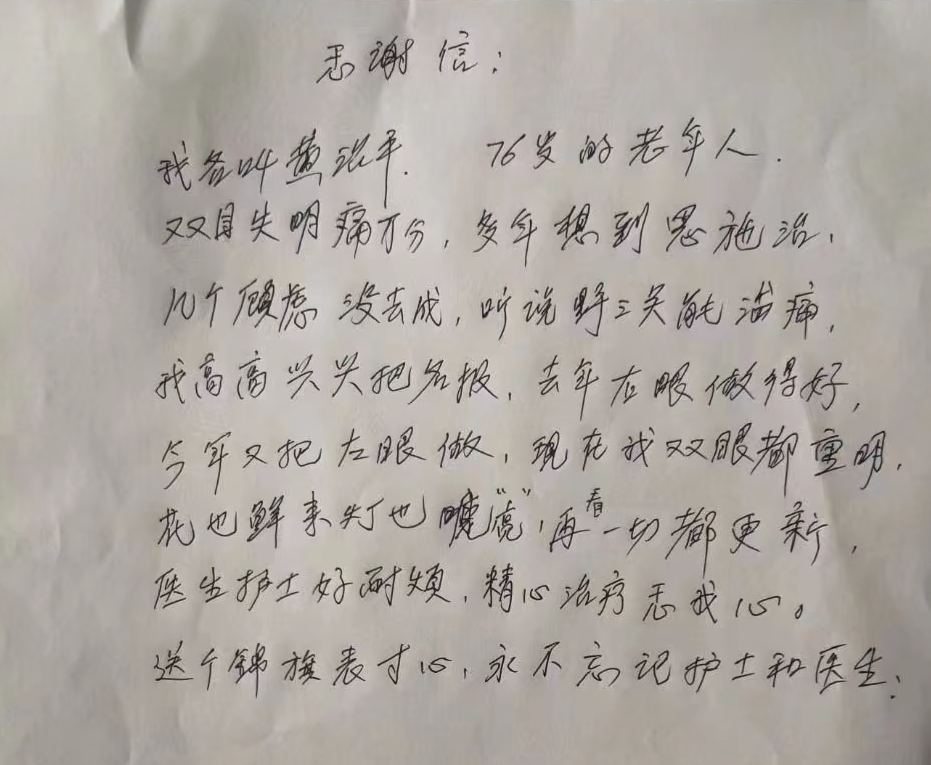 感谢信:
我名叫黄 平. 76岁的老年人.
双目失明痛万分,多年想到恩施治,
几个顾虑没去成,听说野三关能治病,
我高高兴兴把名报,去年右眼做得好,
今年又把左眼做,现在我双眼都重明,
花也鲜来灯也 "亮",再看一切都更新,
医生护士好耐烦,精心治疗感我心。
送个锦旗表寸心,永不忘记护士和医生: